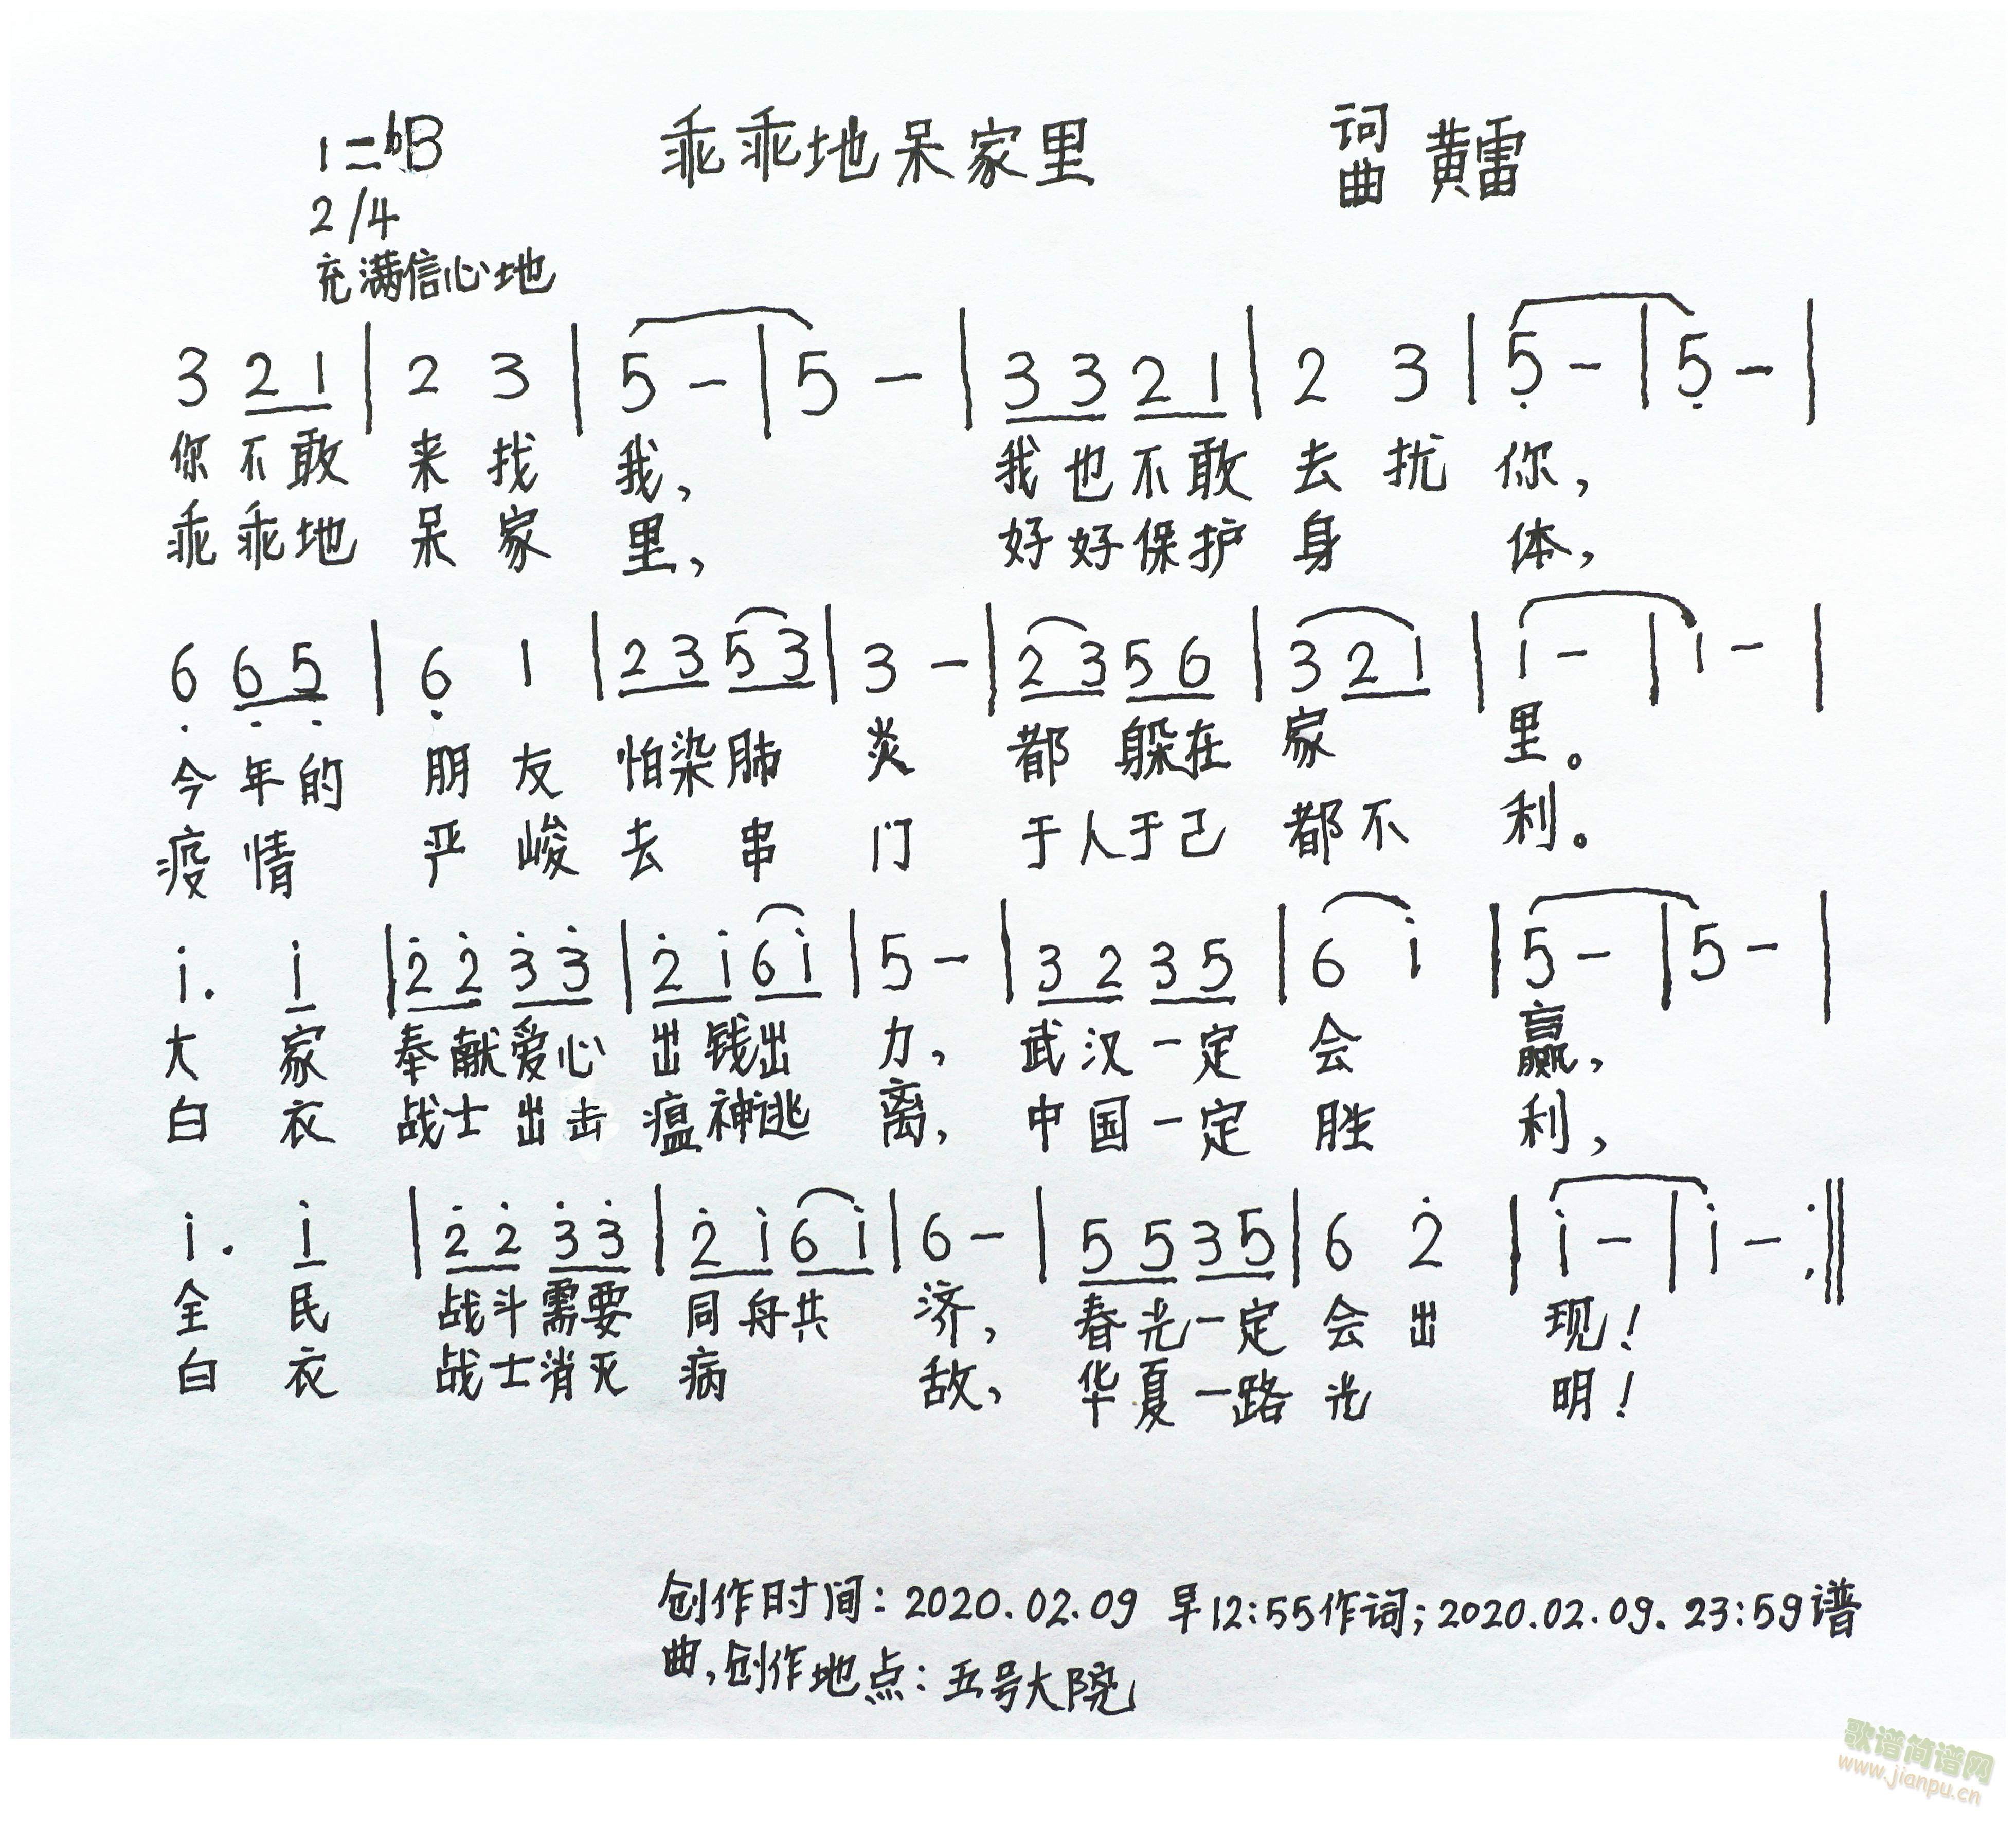 1=bB 乖乖地呆家里 词曲 黄雷
2/4
充满信心地
3 2 1 | 2 3 | 5 - | 5 - | 3 3 2 1 | 2 3 | 5̣ - | 5̣ - |
你不敢 来找 我, 我也不敢 去扰 你,
乖乖地 呆家 里, 好好保护 身 体,
6̣ 6̣ 5̣ | 6̣ 1 | 2 3 5 3 | 3 - | 2 3 5 6 | 3 2 1 | 1 - | 1 - |
今年的 朋友 怕染肺 炎 都 躲在 家 里。
疫情 严峻 去 串 门 于人于己 都不 利。
i. i | 2̇ 2̇ 3̇ 3̇ | 2̇ i 6 i | 5 - | 3 2 3 5 | 6 i | 5 - | 5 - |
大 家 奉献爱心 出钱出 力, 武汉一定 会 赢,
白 衣 战士出击 瘟神逃 离, 中国一定 胜 利,
i. i | 2̇ 2̇ 3̇ 3̇ | 2̇ i 6 i | 6 - | 5 5 3 5 | 6 2̇ | i - | i - :||
全 民 战斗需要 同舟共 济, 春光一定 会出 现!
白 衣 战士消灭 病 敌, 华夏一路 光 明!
创作时间: 2020.02.09 早12:55作词; 2020.02.09. 23:59谱
曲,创作地点: 五号大院
歌谱简谱网
www.jianpu.cn